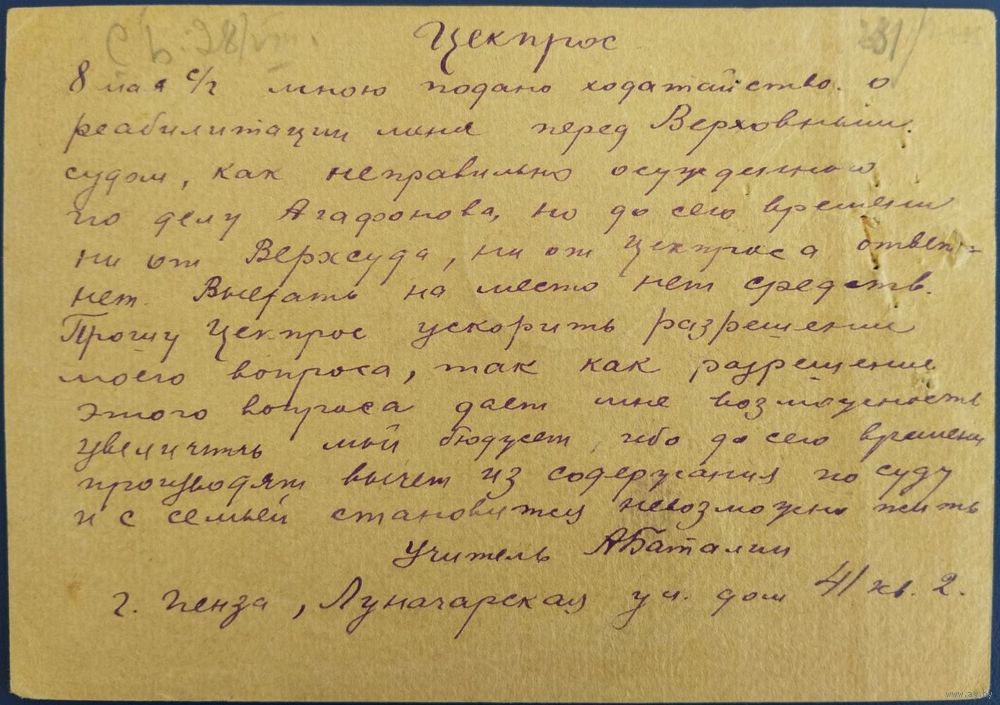 Цекпрос
8 мая с/г мною подано ходатайство о
реабилитации меня перед Верховным
судом, как неправильно осужденного
по делу Агафонова, но до сего времени
ни от Верхсуда, ни от Цекпроса ответ-
нет. Выехать на место нет средств.
Прошу Цекпрос ускорить разрешении
моего вопроса, так как разрешение
этого вопроса дает мне возможность
увеличить мой бюджет, ибо до сего времени
производят вычет из содержания по суду
и с семьей становится невозможно жить
Учитель АБаталин
г. Пенза, Луначарская ул. дом 41 кв. 2.
www.ay.by